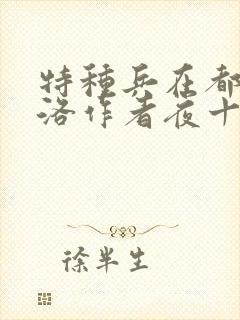 特種兵在都
洛作者夜十
徐半生